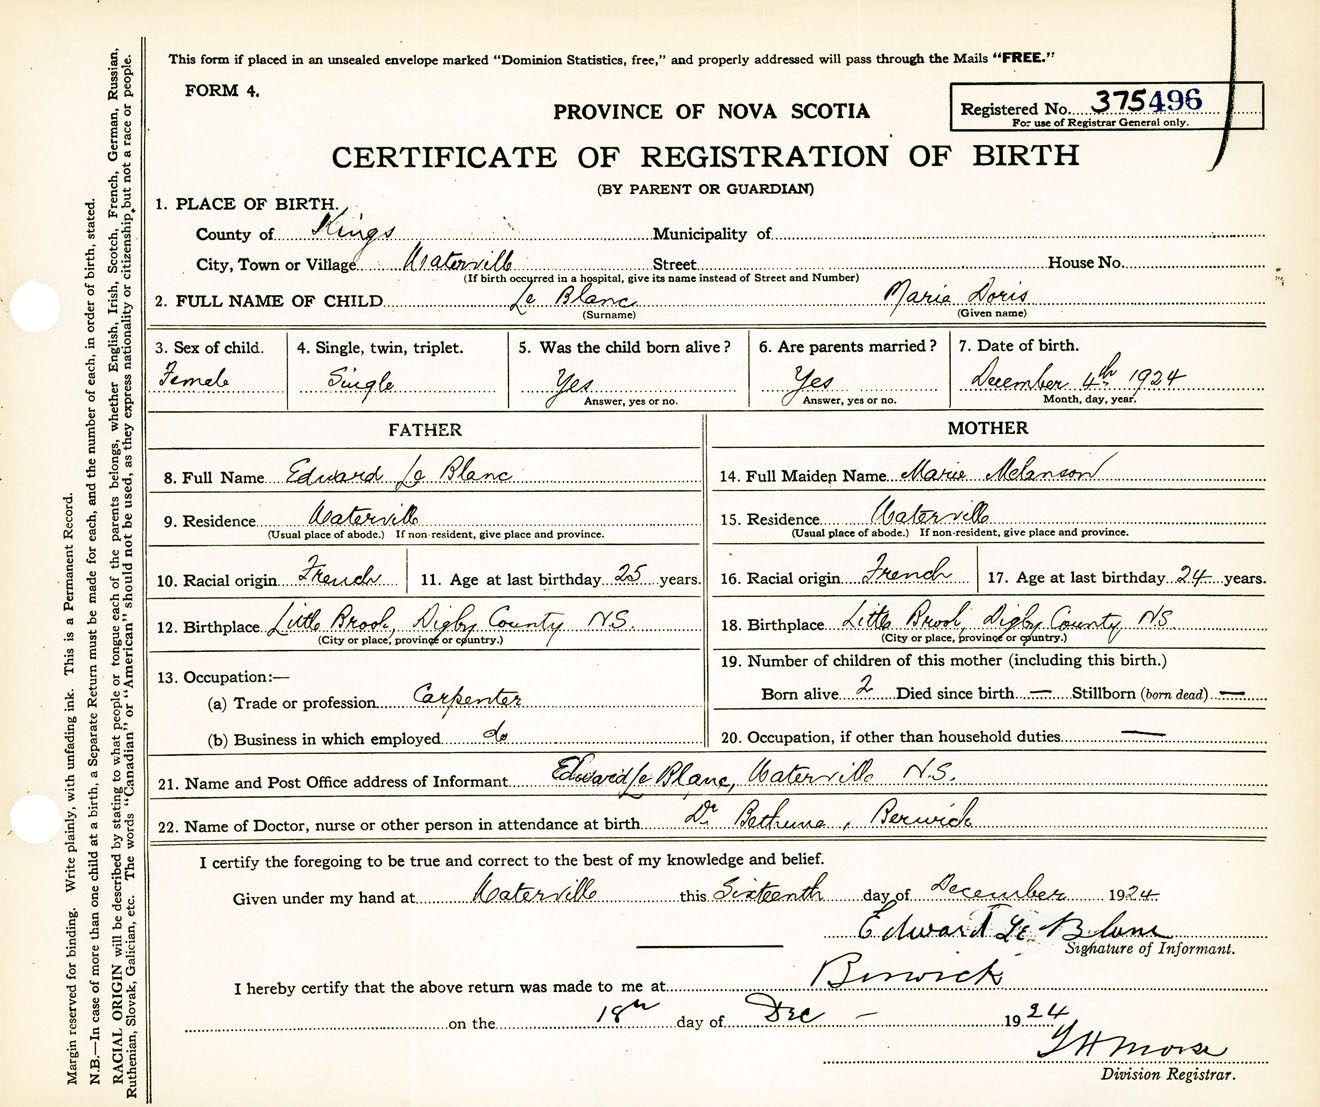 This form if placed in an unsealed envelope marked "Dominion Statistics, free," and properly addressed will pass through the Mails "FREE."
FORM 4.
Registered No. 375496
For use of Registrar General only.
PROVINCE OF NOVA SCOTIA
CERTIFICATE OF REGISTRATION OF BIRTH
(BY PARENT OR GUARDIAN)
1. PLACE OF BIRTH.
County of Kings Municipality of
City, Town or Village Waterville Street House No.
(If birth occurred in a hospital, give its name instead of Street and Number)
2. FULL NAME OF CHILD Le Blanc Marie Doris
(Surname) (Given name)
3. Sex of child. 4. Single, twin, triplet. 5. Was the child born alive? 6. Are parents married? 7. Date of birth.
Female Single Yes Yes December 4th 1924
Answer, yes or no. Answer, yes or no. Month, day, year.
FATHER
8. Full Name Edward Le Blanc
9. Residence Waterville
(Usual place of abode.) If non-resident, give place and province.
10. Racial origin French 11. Age at last birthday 25 years.
12. Birthplace Little Brook, Digby County N.S.
(City or place, province or country.)
13. Occupation:—
(a) Trade or profession Carpenter
(b) Business in which employed do
MOTHER
14. Full Maiden Name Marie Melanson
15. Residence Waterville
(Usual place of abode.) If non-resident, give place and province.
16. Racial origin French 17. Age at last birthday 24 years.
18. Birthplace Little Brook, Digby County NS
(City or place, province or country.)
19. Number of children of this mother (including this birth.)
Born alive 2 Died since birth — Stillborn (born dead) —
20. Occupation, if other than household duties —
21. Name and Post Office address of Informant Edward Le Blanc, Waterville N.S.
22. Name of Doctor, nurse or other person in attendance at birth Dr Bethune, Berwick
I certify the foregoing to be true and correct to the best of my knowledge and belief.
Given under my hand at Waterville this Sixteenth day of December 1924
Edward Le Blanc
Signature of Informant.
I hereby certify that the above return was made to me at Berwick
on the 18th day of Dec — 1924
Morse
Division Registrar.
Margin reserved for binding. Write plainly, with unfading ink. This is a Permanent Record.
N.B.—In case of more than one child at a birth, a Separate Return must be made for each, and the number of each, in order of birth, stated.
RACIAL ORIGIN will be described by stating to what people or tongue each of the parents belongs, whether English, Irish, Scotch, French, German, Russian,
Ruthenian, Slovak, Galician, etc. The words "Canadian" or "American" should not be used, as they express nationality or citizenship, but not a race or people.